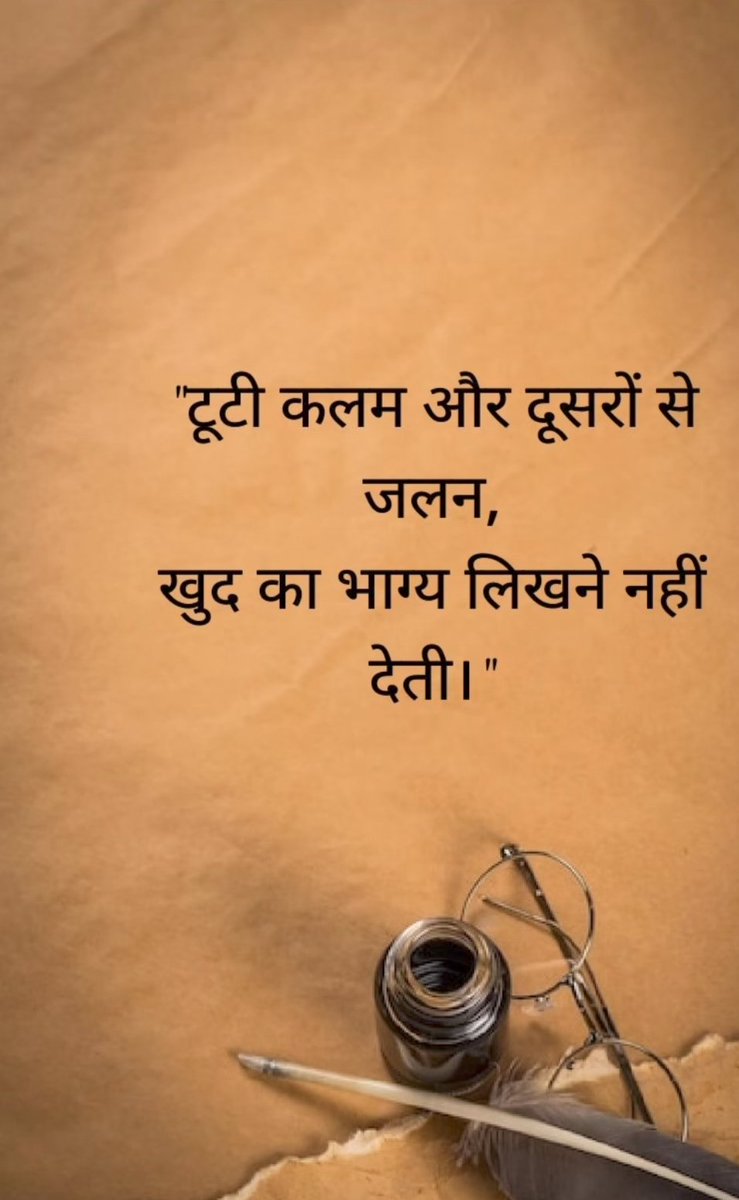 "टूटी कलम और दूसरों से
जलन,
खुद का भाग्य लिखने नहीं
देती।"